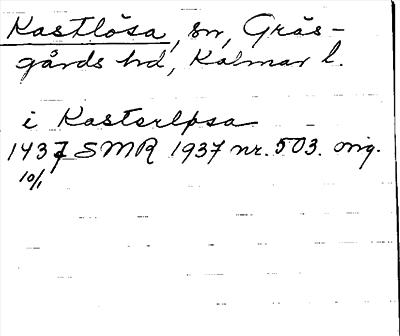 Kastlösa, sn, Gräs-
gårds hd, Kalmar l.
i Kasterløsa
1437 SMR 1937 nr. 503. orig.
10/1